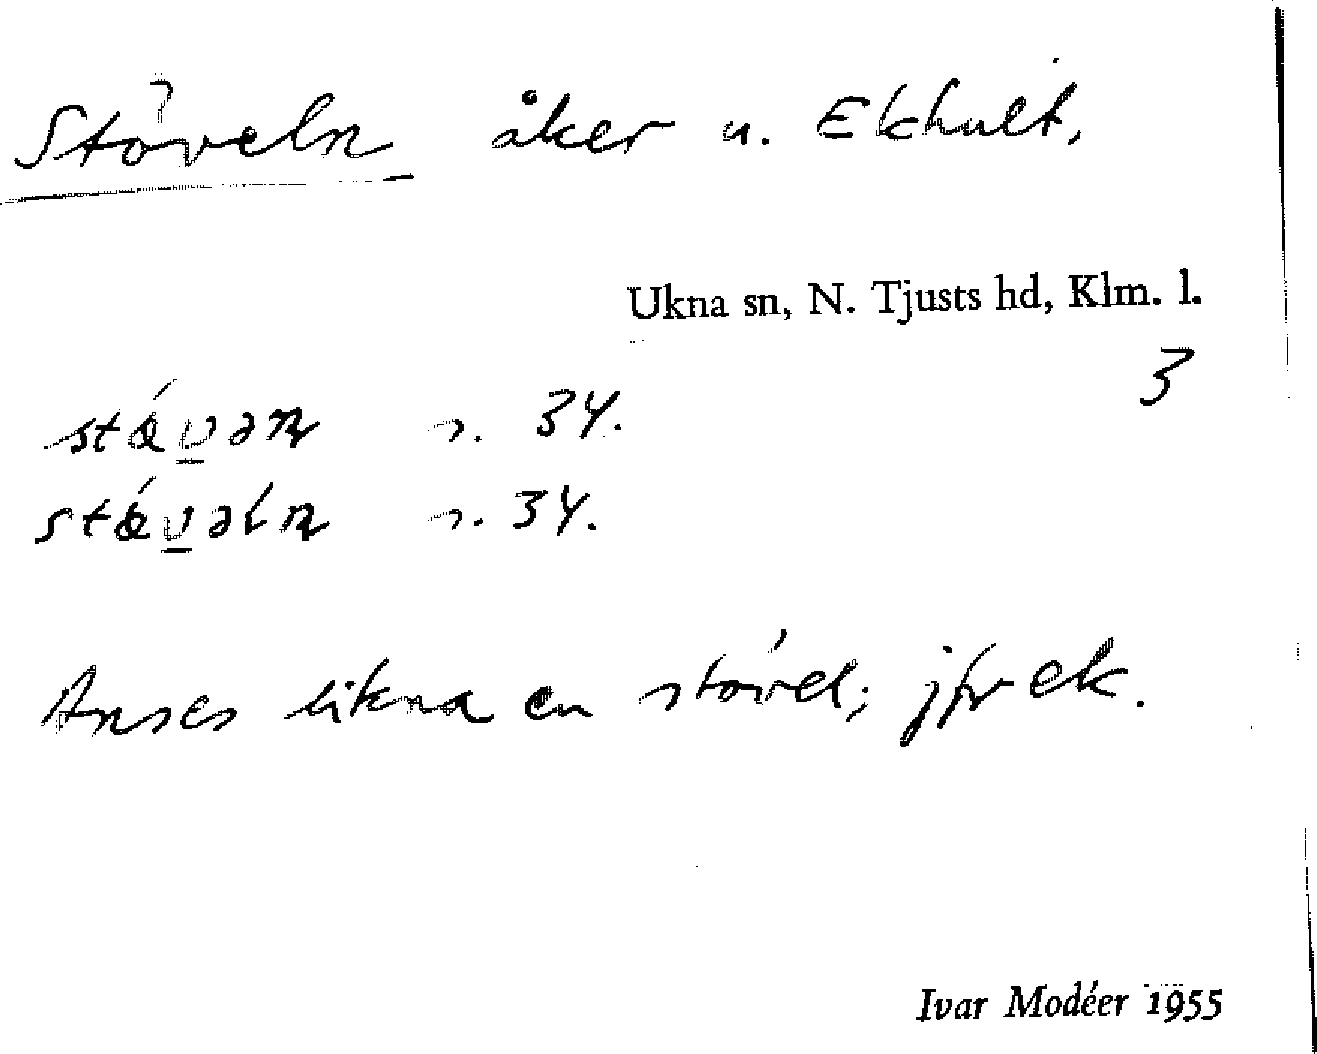 Stöveln åker u. Ekhult.
Ukna sn, N. Tjusts hd, Klm. l.
3
34.
34.
Anses likna en stövel; jfr ek.
Ivar Modéer 1955